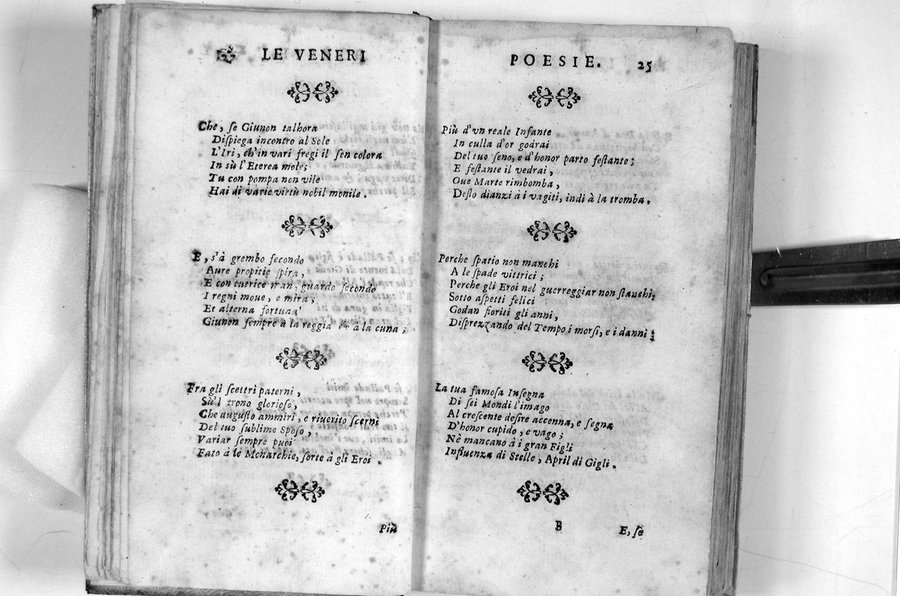 LE VENERI
Che, se Giunon talhora
Dispiega incontro al Sole
L'Iri, ch'in vari fregi il sen colora
In sù l'Eterea mole;
Tu con pompa non vile
Hai di varie virtù nobil monile.
E, s'à grembo fecondo
Aure propitie spira,
E con cutrice man, guardo secondo
I regni moue, e mira;
Et alterna fortuna
Giunon sempre à la reggia à la cuna;
Fra gli scettri paterni,
Sù'l trono glorioso,
Che augusto ammiri, e riuerito scerni
Del tuo sublime Sposo,
Variar sempre puoi
Fato à le Monarchie, sorte à gli Eroi.
Più
POESIE. 25
Più d'vn reale Infante
In culla d'or godrai
Del tuo seno, e d'honor parto festante;
E festante il vedrai,
Oue Marte rimbomba,
Desto dianzi à i vagiti, indi à la tromba,
Perche spatio non manchi
A le spade vittrici;
Perche gli Eroi nel guerreggiar non stanchi,
Sotto aspetti felici
Godan fioriti gli anni,
Disprezzando del Tempo i morsi, e i danni;
La tua famosa Insegna
Di sei Mondi l'imago
Al crescente desire accenna, e segna
D'honor cupido, e vago;
Nè mancano à i gran Figli
Influenza di Stelle, April di Gigli.
B E, se